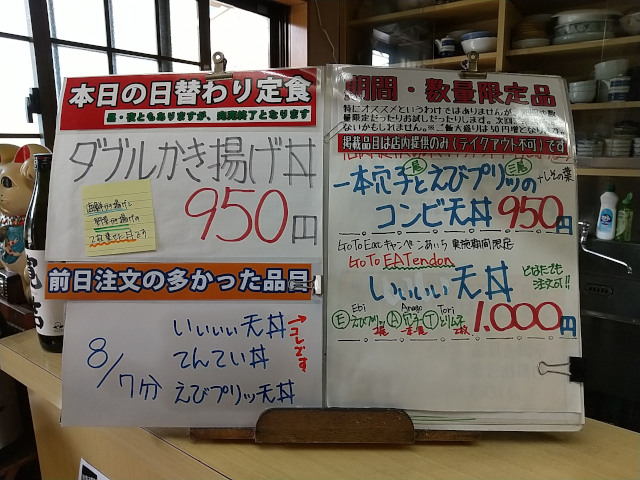 本日の日替わり定食
昼・夜ともありますが、完売終了となります
ダブルかき揚げ丼
海鮮かき揚げと
野菜かき揚げの
2枚乗せた丼です
950円
前日注文の多かった品目
8/7分
いいいい天丼
→コレです
てんてい丼
えびプリッ天丼
期間・数量限定品
特にオススメというわけではありませんが
量限定だったりお試しだったりします。次回
ないかもしれません。※ご飯大盛りは50円増となり
掲載品目は店内提供のみ(テイクアウト不可)です
一本穴子とえびプリッの
+しその葉
コンビ天丼 950円
GoTo Eatキャンペーンあいち 実施期間限定
GoTo EATendon
いいいい天丼
どなたでも
注文可!!
Ebi Anago Tori
E えびプリッ A 穴子 T とりムネ
1.000円